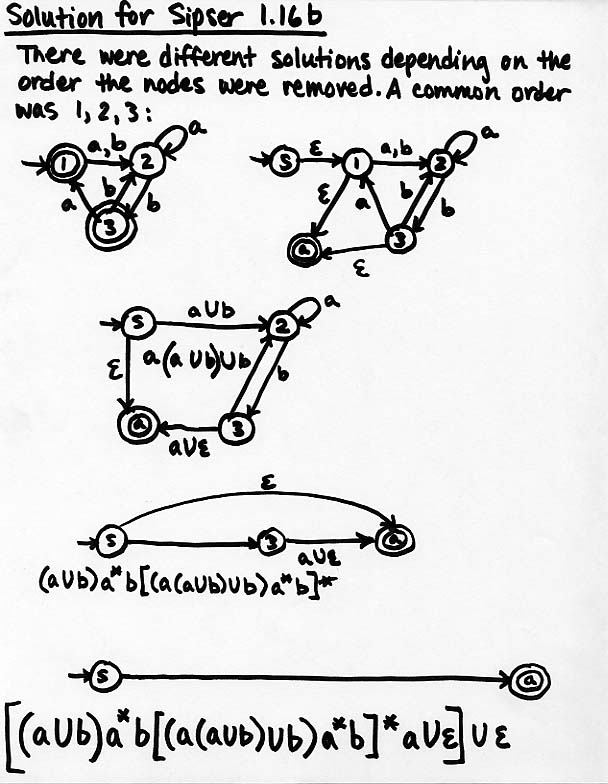 Solution for Sipser 1.16b
There were different solutions depending on the
order the nodes were removed. A common order
was 1, 2, 3:
1 a,b 2 a
a b b
3
s ε 1 a,b 2 a
ε a b b
a ε 3
s a∪b 2 a
ε a(a∪b)∪b b
a a∪ε 3
ε
s 3 a∪ε a
(a∪b)a*b[(a(a∪b)∪b)a*b]*
s a
[(a∪b)a*b[(a(a∪b)∪b)a*b]*a∪ε]∪ε